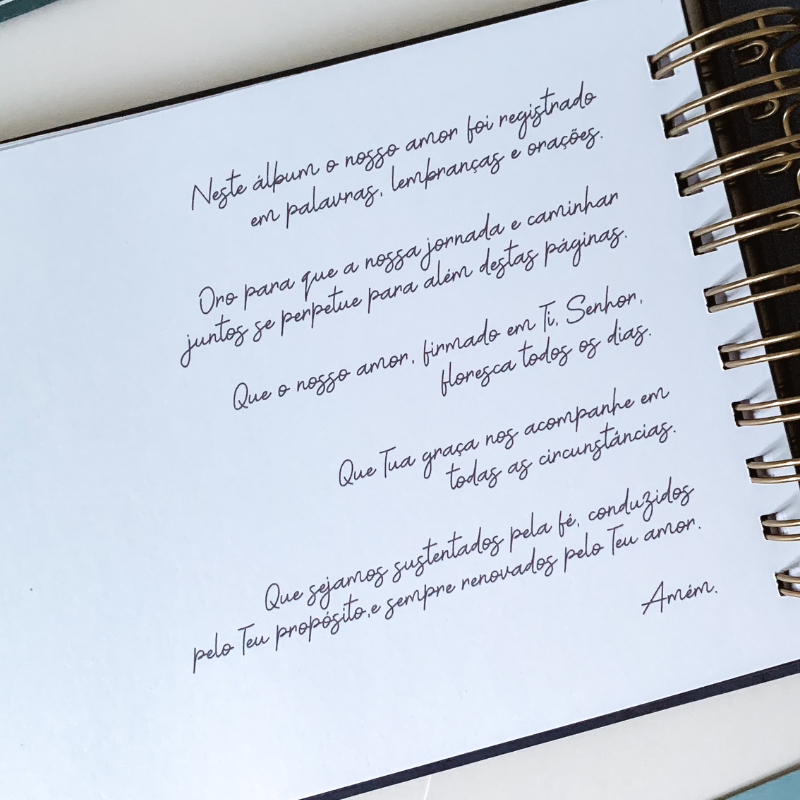 Neste álbum o nosso amor foi registrado
em palavras, lembranças e orações.
Oro para que a nossa jornada e caminhar
juntos se perpetue para além destas páginas.
Que o nosso amor, firmado em Ti, Senhor,
floresca todos os dias.
Que Tua graça nos acompanhe em
todas as circunstâncias.
Que sejamos sustentados pela fé, conduzidos
pelo Teu propósito,e sempre renovados pelo Teu amor.
Amém.